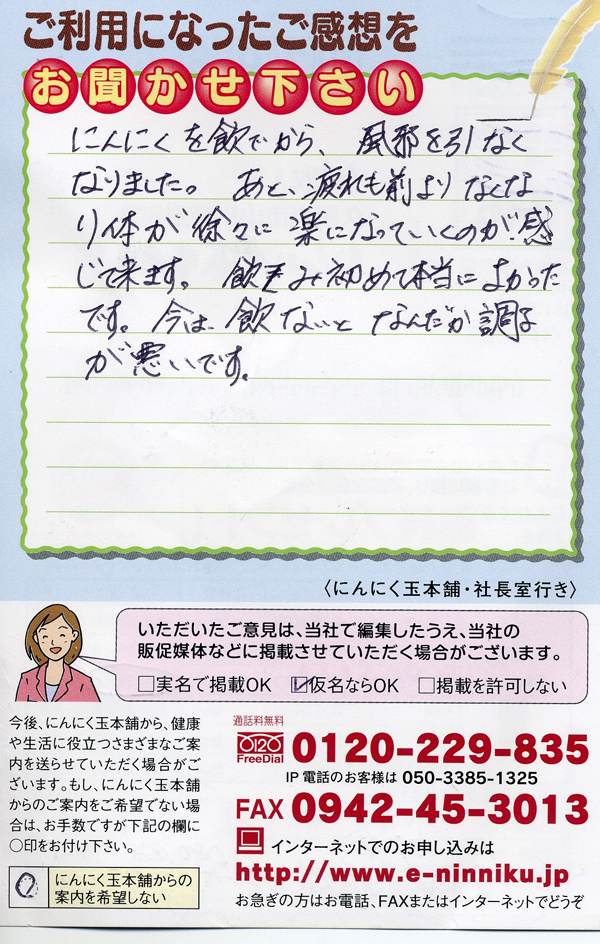 ご利用になったご感想を
お聞かせ下さい
にんにくを飲でから、風邪を引なく
なりました。あと、疲れも前よりなくな
り体が徐々に楽になっていくのが感
じて来ます。飲み初めて本当によかった
です。今は、飲ないとなんだか調子
が悪いです。
〈にんにく玉本舗・社長室行き〉
いただいたご意見は、当社で編集したうえ、当社の
販促媒体などに掲載させていただく場合がございます。
□実名で掲載OK ☑仮名ならOK □掲載を許可しない
今後、にんにく玉本舗から、健康
や生活に役立つさまざまなご案
内を送らせていただく場合がご
ざいます。もし、にんにく玉本舗
からのご案内をご希望でない場
合は、お手数ですが下記の欄に
○印をお付け下さい。
にんにく玉本舗からの
案内を希望しない
通話料無料
FreeDial 0120-229-835
IP電話のお客様は 050-3385-1325
FAX 0942-45-3013
インターネットでのお申し込みは
http://www.e-ninniku.jp
お急ぎの方はお電話、FAXまたはインターネットでどうぞ